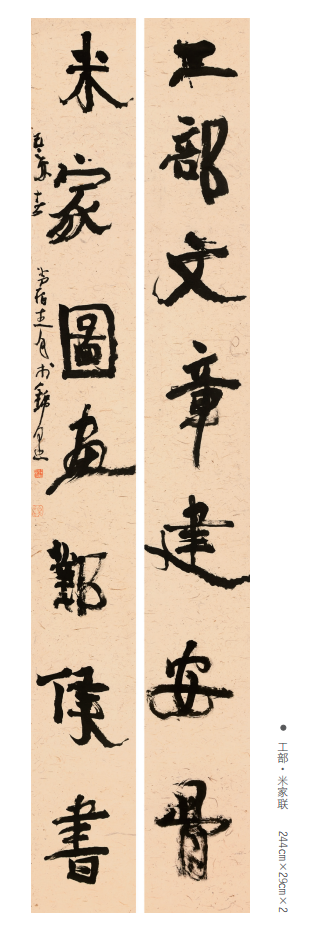 工部文章建安骨
米家圖畫鄴侯書
● 工部·米家联 244cm×29cm×2